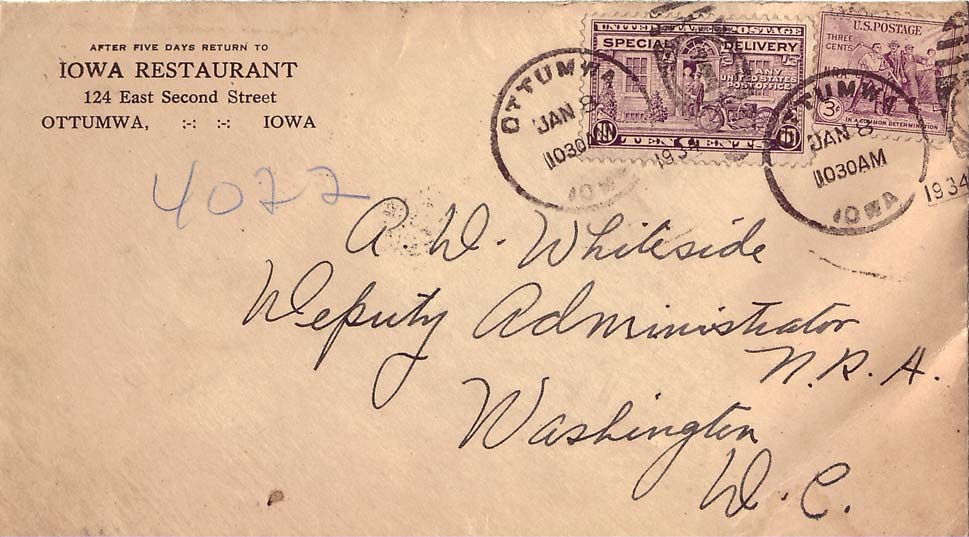 AFTER FIVE DAYS RETURN TO
IOWA RESTAURANT
124 East Second Street
OTTUMWA, :-: :-: IOWA
UNITED STATES POSTAGE
SPECIAL DELIVERY
AT ANY
UNITED STATES
POST OFFICE
10 TEN CENTS 10
U.S. POSTAGE
THREE
CENTS
NRA
3¢
IN A COMMON DETERMINATION
OTTUMWA
JAN 8
1030AM
1934
IOWA
OTTUMWA
JAN 8
1030AM
1934
IOWA
4022
A. D. Whiteside
Deputy Administrator
N.R.A.
Washington
D.C.